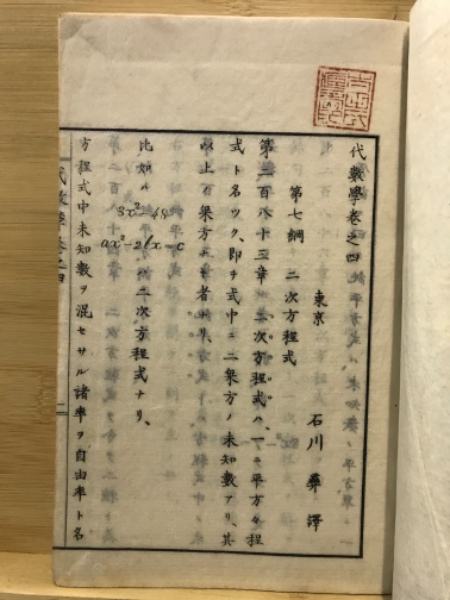 代數學卷之四
東京 石川彝譯
第七綱 二次方程式
第二百八十三章 二次方程式ハ、一ニ平方方程
式ト名ツク、即チ式中ニ二乗方ノ未知數アリ、其
以上ノ乗方ナキ者ナリ、
比如ハ 3x²=48
ax²-2bx=c
二次方程式ナリ、
方程式中未知數ヲ混セサル諸率ヲ自由率ト名